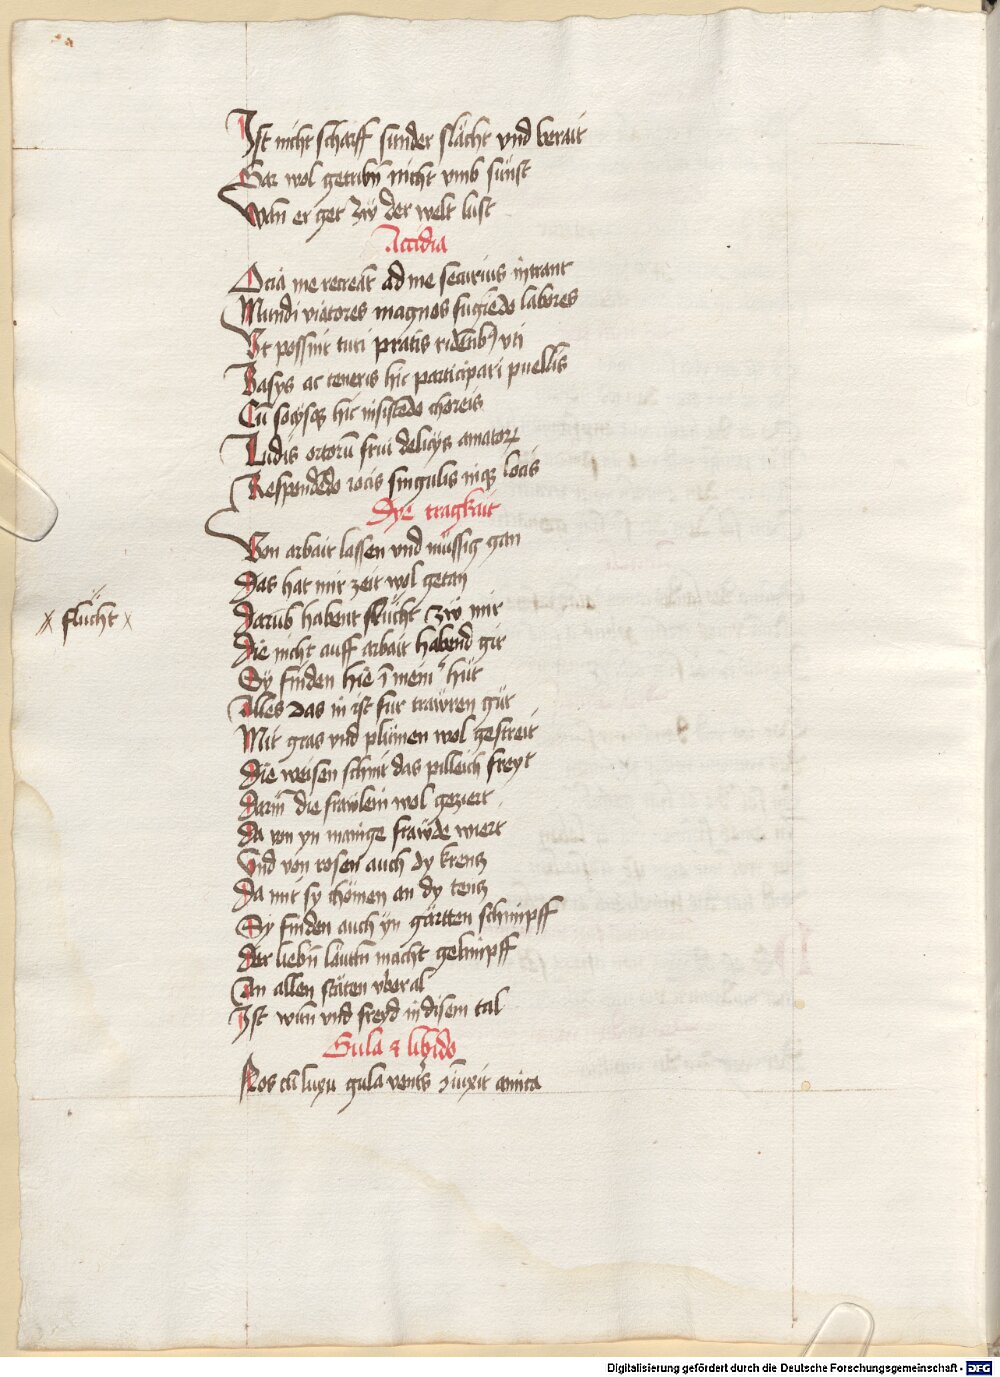 Ist nicht scharff sunder slächt vnd berait
Gar wol getribñ nicht vmb sünst
Wañ er get zw̋ der welt lust
Accidia
Ocia me recreãt ad me securius intrant
Mundi viatores magnos fugiẽdo labores
Vt possint tuti pratis ridẽtibꝫ vti
Basys ac teneris hic participari puellis
Cũ socysqꝫ hic insistẽdo choreis
Ludis ortorũ frui delicys amatoꝝ
Respondẽdo iocis singulis inqꝫ locis
Dye tragkait
Von arbait lassen vnd müssig gan
Das hat mir zeit wol getan
Darũb habent flücht zw̋ mir
× flücht ×
Die nicht auff arbait habend gir
Sÿ finden hie ĩ meinˀ hüt
Alles das in ist für trawren güt
Mit gras vnd plümen wol gestreit
Die weisen schint das pilleich freyt
Darin̄ die frawlein wol geziert
Da von yn mainge frawde wiert
Vnd von rosen auch dy krentz
Da mit sy chömen an dy tentz
Sy finden auch yn gärtten schimpff
Der liebñ läutñ macht gelimpff
An allen stäten vberal
Ist wün vnd freyd in disem tal
Gula & libido
Nos cũ luxu gula ventˀs ɔiũxit amica
Digitalisierung gefördert durch die Deutsche Forschungsgemeinschaft - DFG